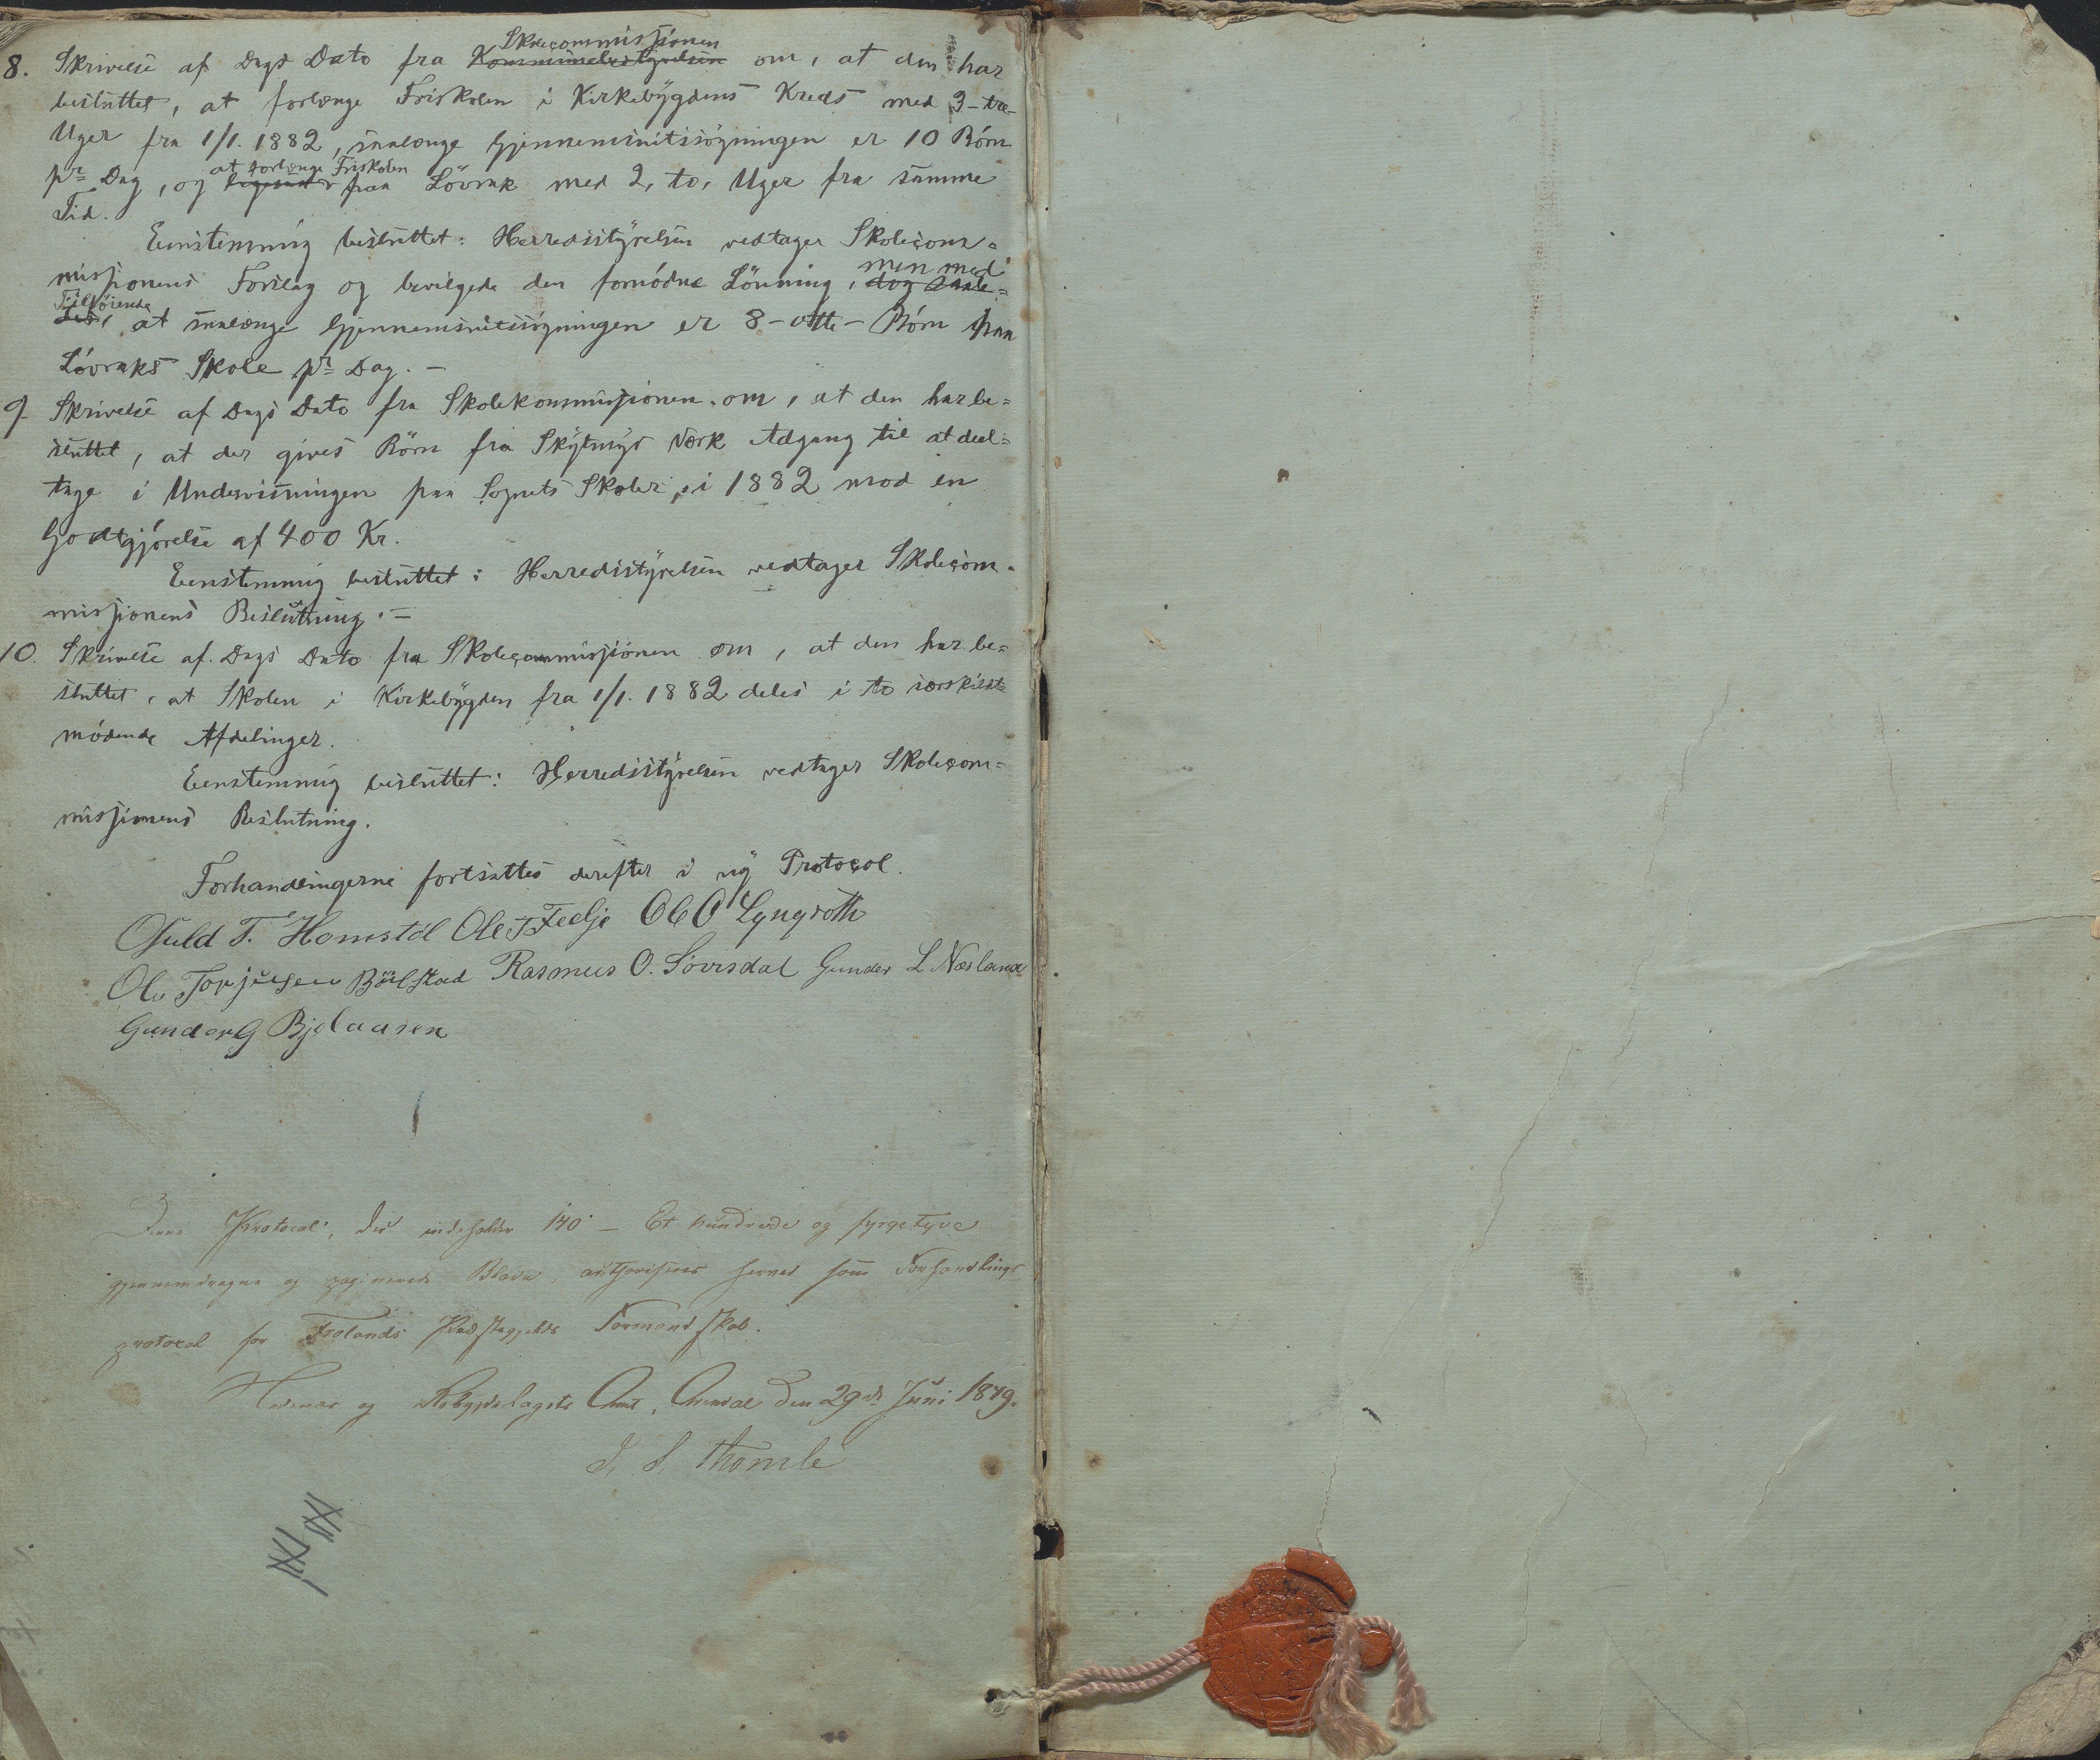 8. Skrivelse af Dags Dato fra Skolecommissionen Kommunebestyrelsen om, at den har
besluttet, at forlænge Friskolen i Kirkebygdens Kreds med 3 - tre -
Uger fra 1/1. 1882, saalænge Gjennemsnitssøgningen er 10 Børn
pr Dag, og at forlænge Friskolen paa Løvrak med 2, to, Uger fra samme
Tid.
Eenstemmig besluttet: Herredsstyrelsen vedtager Skolecom=
missionens Forslag og bevilgede den fornødne Lønning, men med dog saale=
Tilføiende des, at saalænge Gjennemsnitssøgningen er 8 - otte - Børn paa
Løvraks Skole pr Dag. -
9. Skrivelse af Dags Dato fra Skolekommissionen om, at den har be=
sluttet, at der gives Børn fra Værk Adgang til at deel=
tage i Undervisningen paa Sognets Skoler, i 1882 mod en
Godtgjørelse af 400 Kr.
Eenstemmig besluttet: Herredsstyrelsen vedtager Skolecom=
missionens Beslutning. -
10. Skrivelse af Dags Dato fra Skolecommissionen om, at den har be=
sluttet, at Skolen i Kirkebygden fra 1/1. 1882 deles i to særskildte
mødende Afdelinger.
Eenstemmig besluttet: Herredsstyrelsen vedtager Skolecom=
missionens Beslutning.
Forhandlingerne fortsattes derefter i ny Protocol.
T. Homstøl Ole T Fedje Ole O Lyngroth
Ole Torjusen Bøylstad Rasmus O. Løvrsdal Gunder L. Næsland
Gunder G Bjelaasen
Denne Protocol, der indeholder 140 - Et hundrede og fyrgetyve
gjennemdragne og paginerede Blade authoriseres herved som Forhandlings
protocol for Frolands Præstegjelds Formandskab.
Nedenæs og Robygdelagets Amt, Arendal den 29de Juni 1849.
Thomle